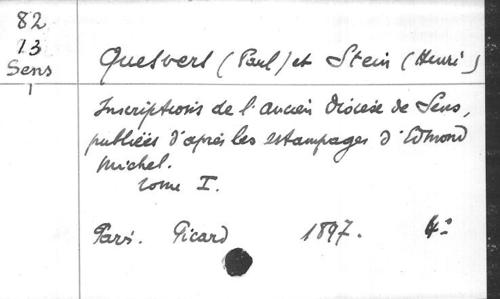 82
13
Sens
1
Quesvers (Paul) et Stein (Henri)
Inscriptions de l'ancien diocèse de Sens,
publiées d'après les estampages d'Edmond
Michel.
Tome I.
Paris. Picard 1897. 4°